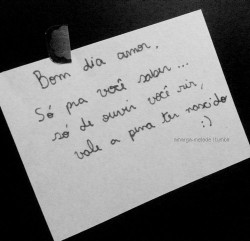 Bom dia amor,
Só pra você saber...
só de ouvir você rir,
vale a pena ter nascido
:)